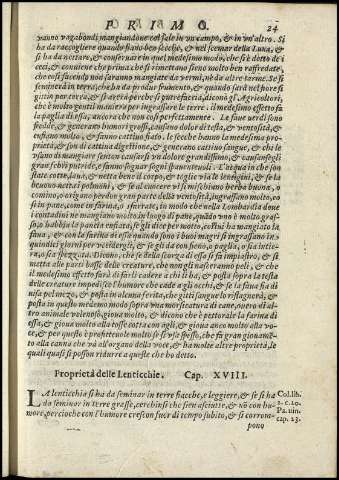 PRIMO. 24
vanno vagabondi mangiandone col sale in un campo, & in un'altro. Si
ha da raccogliere quando siano ben secche, & nel scemar della Luna, &
si ha da nettare, & conseruare in quel medesimo modo, che s'è detto de i
ceci, & conuiene che prima che si rimettano siano molto ben raffredate,
che cosi facendo non saranno mangiate da vermi, nè da altre tarme. Se si
seminerà in terra, che ha da produr frumento, & quando sarà nel fiore si
gitti per terra, & si arerà perche si putrefaccia, dicono gli Agricoltori,
che è molto gentil maniera per ingrassare le terre: il medesimo effetto fa
la paglia di essa, ancora che non cosi perfettamente. Le faue verdi sono
fredde, & generano humori grossi, causano dolor di testa, & ventosità, &
enfiano molto, & fanno cattiuo fiato. le secche hanno la medesima pro-
prietà, & son di cattiua digestione, & generano cattiuo sangue, & che le
usano di mangiare senton causarsi un dolore grandissimo, & causansegli
gran febri putride, & fanno sognar sogni spauenteuoli. L'acqua in che son
state cotte, laua, & netta bene il corpo, & toglie via le lentigini, & se la
beuono netta i polmoni, & se al cuocere vi si mischiano herba buona, o
comino, o origano perdon gran parte della ventosità, ingrassano molto, co
si in pane, come in farina, o sfarrate, in modo che nella Lombardia doue
i contadini ne mangiano molto in luogo di pane, quando uno è molto gras-
so, o habbia la pancia enfiata, se gli dice per motto, costui ha mangiato la
faua, & con la farina di essa quando sono i buoi magri si ingrassano in
quindici giorni per vccidergli, & se gli dà con fieno, o paglia, o sia intie-
ra, o sia spezzata. Dicono, che se della scorza di essa si fa impiastro, & si
metta alle parti basse delle creature, che non gli nasceranno peli, & che il
medesimo effetto farà di farli cadere a chi li ha, & posta sopra la testa
delle creature impedisce l'humore che cade a gli occhi, & se la faua fia di
uisa pel mezo, & posta in alcuna ferita, che gitti sangue lo ristagnerà, &
posta in questo medesimo modo sopra una morsicatura di cane, ouero d'altro
animale velenoso, gioua molto, & dicono che è pettorale la farina di
essa, & gioua molto alla tosse cotta con agli, & gioua anco molto alla vo-
ce, & per questo i pretendenti molto se si usa spesso, che fa gran giouamen-
to alla canna che và all'organo della voce, & ha molte altre proprietà, le
quali quasi si posson ridurre a queste che ho detto.
Proprietà delle Lenticchie. Cap. XVIII.
LA lenticchia si ha da seminar in terre fiacche, e leggiere, & se si ha
da seminar in terre grasse, cerchinsi che sien asciutte, & nō con hu-
more, percioche con l'humore crescon fuor di tempo subito, & si corrom-
pono
Col. lib.
2. c. 10.
Pa. uin.
cap. 23.